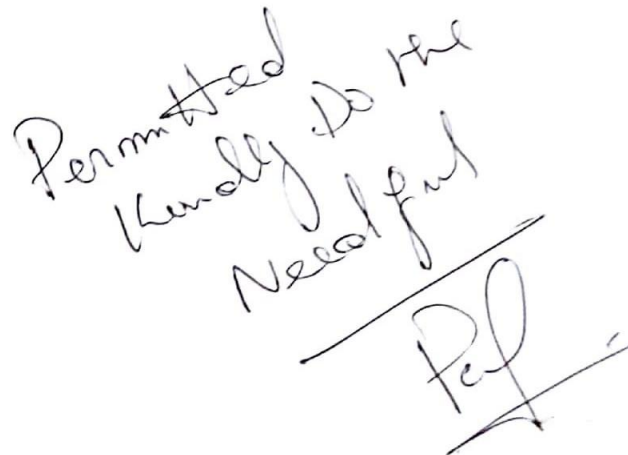 Permitted
Kindly Do the
Needful